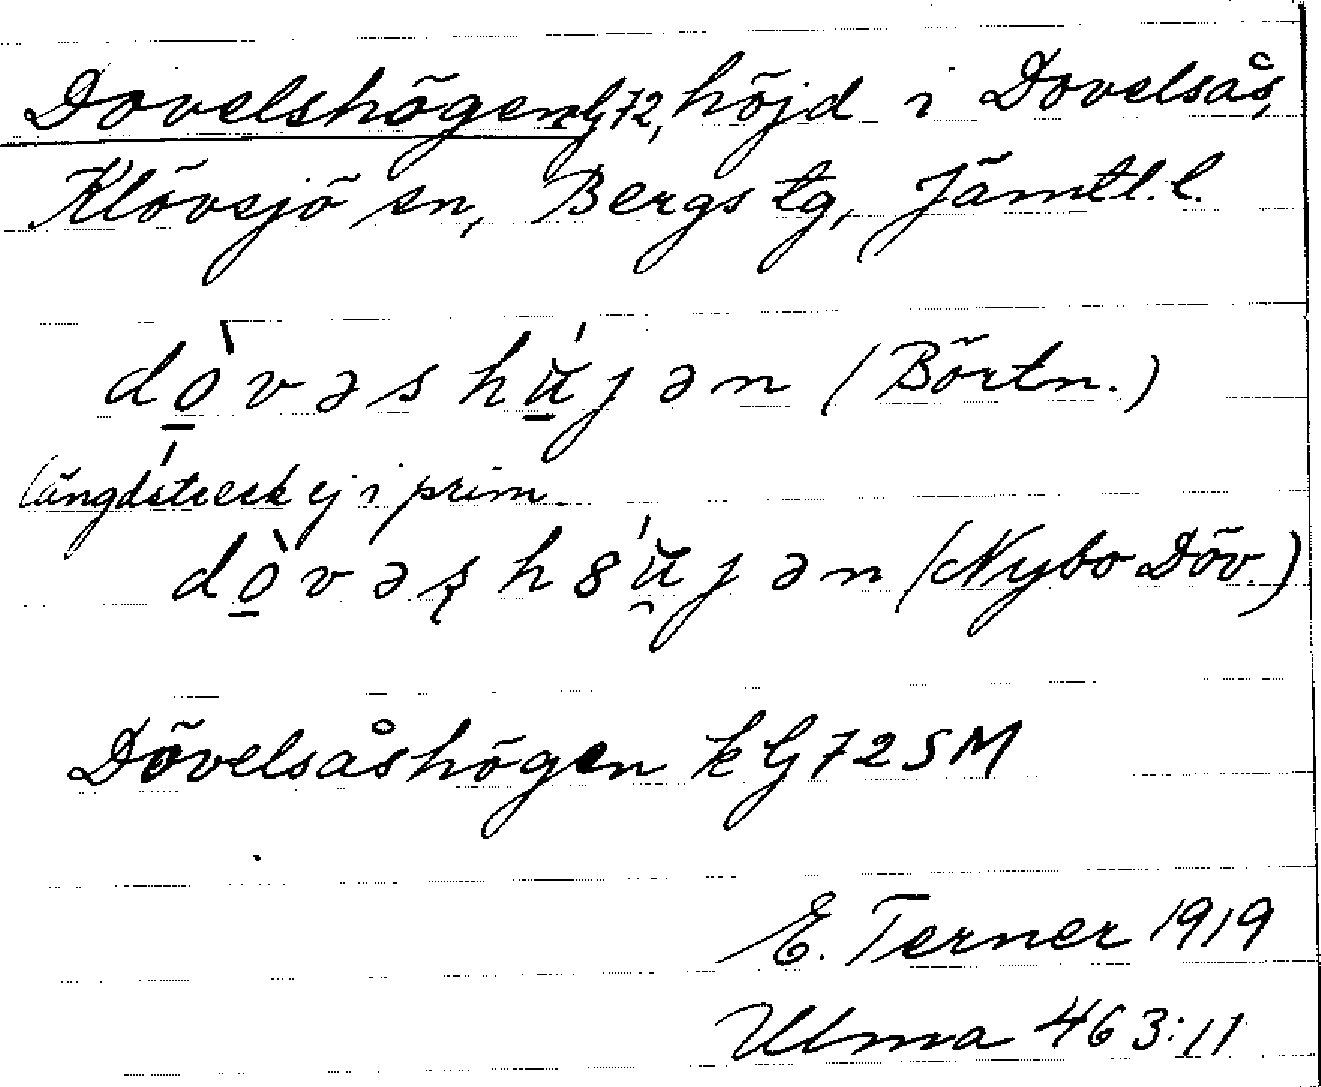 Dovelshögen G72, höjd i Dovelsås,
Klövsjö sn, Bergs tg, Jämtl. l.
dò̱vəshú̱jən (Börtn.)
längdstreck ej i prim.
dò̱vəʂh8ú̯jən (Nybo Döv.)
Dövelsåshögen k G72SM
E. Terner 1919
Ulma 463:11